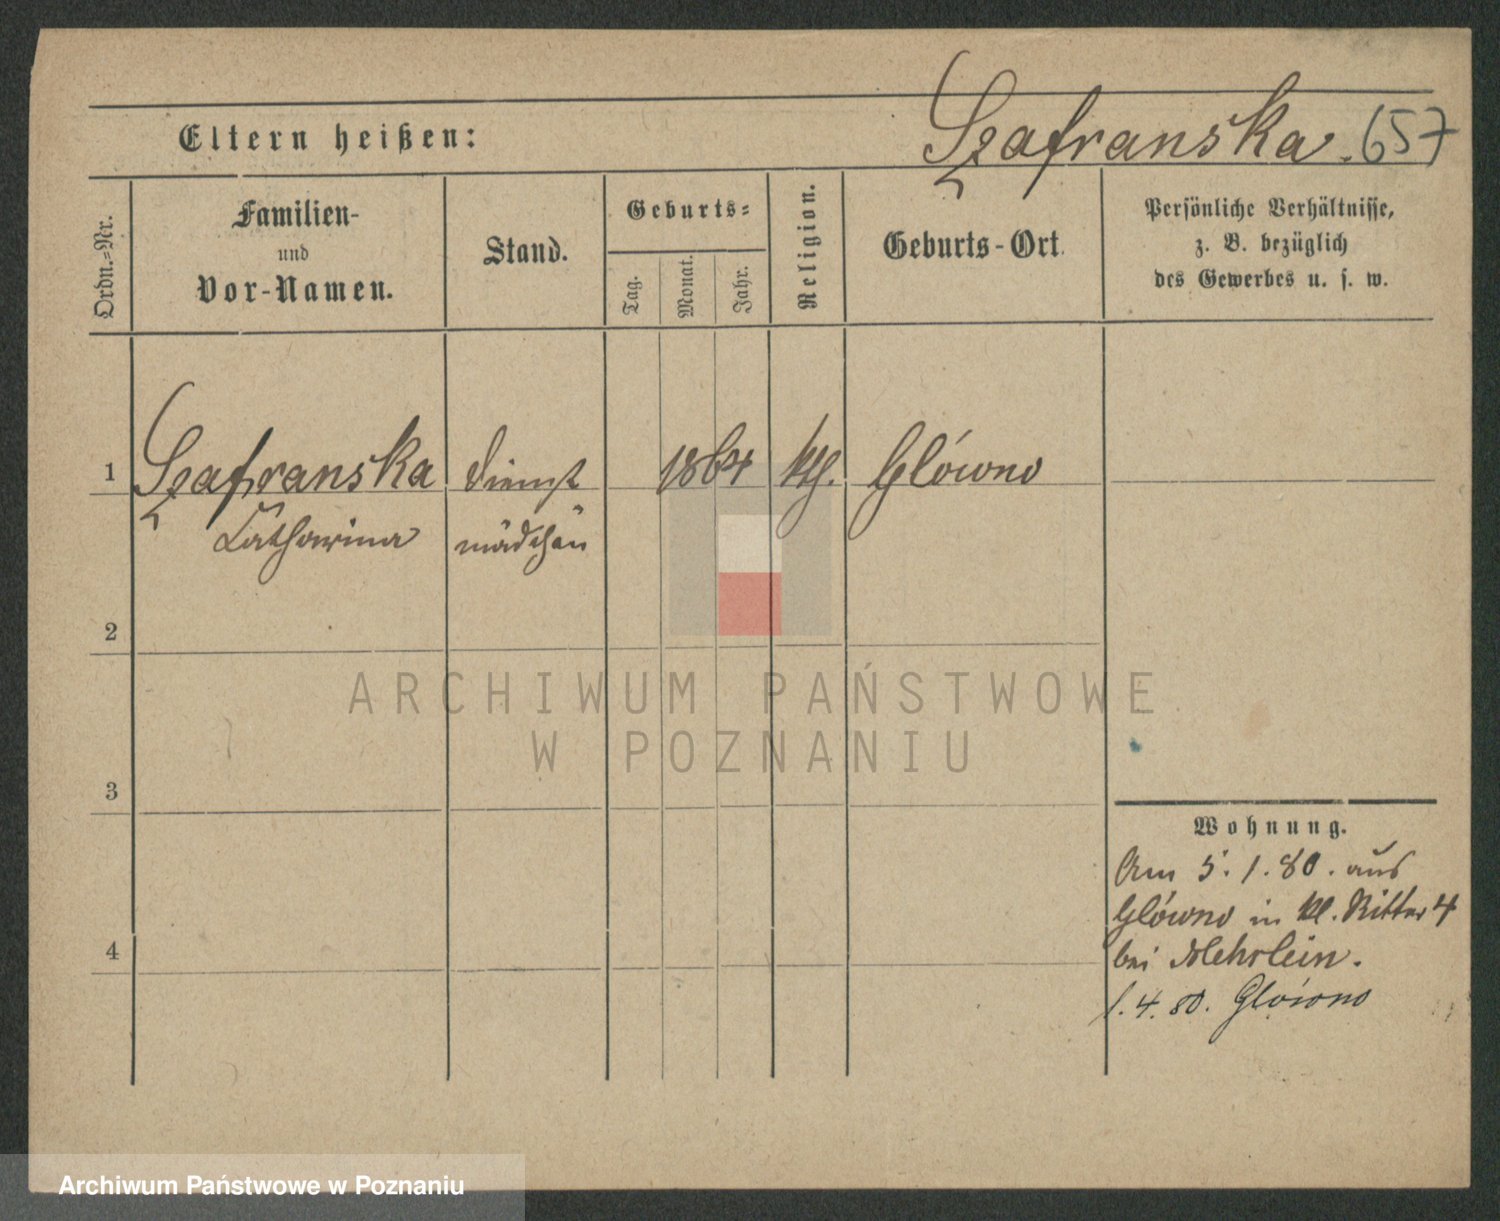 Szafranska. 657
Eltern heißen:
Ordn.-Nr.
Familien-
und
Vor-Namen.
Stand.
Geburts-
Tag.
Monat.
Jahr.
Religion.
Geburts-Ort.
Persönliche Verhältnisse,
z. B. bezüglich
des Gewerbes u. s. w.
1 Szafranska Dienst 1864 kth. Glówno
Catharina mädchen
2
ARCHIWUM PAŃSTWOWE
W POZNANIU
3
Wohnung.
Am 5.1.80. aus
Glówno in kl. Ritter 4
bei Mehrlein.
4
1.4.80. Glówno
Archiwum Państwowe w Poznaniu